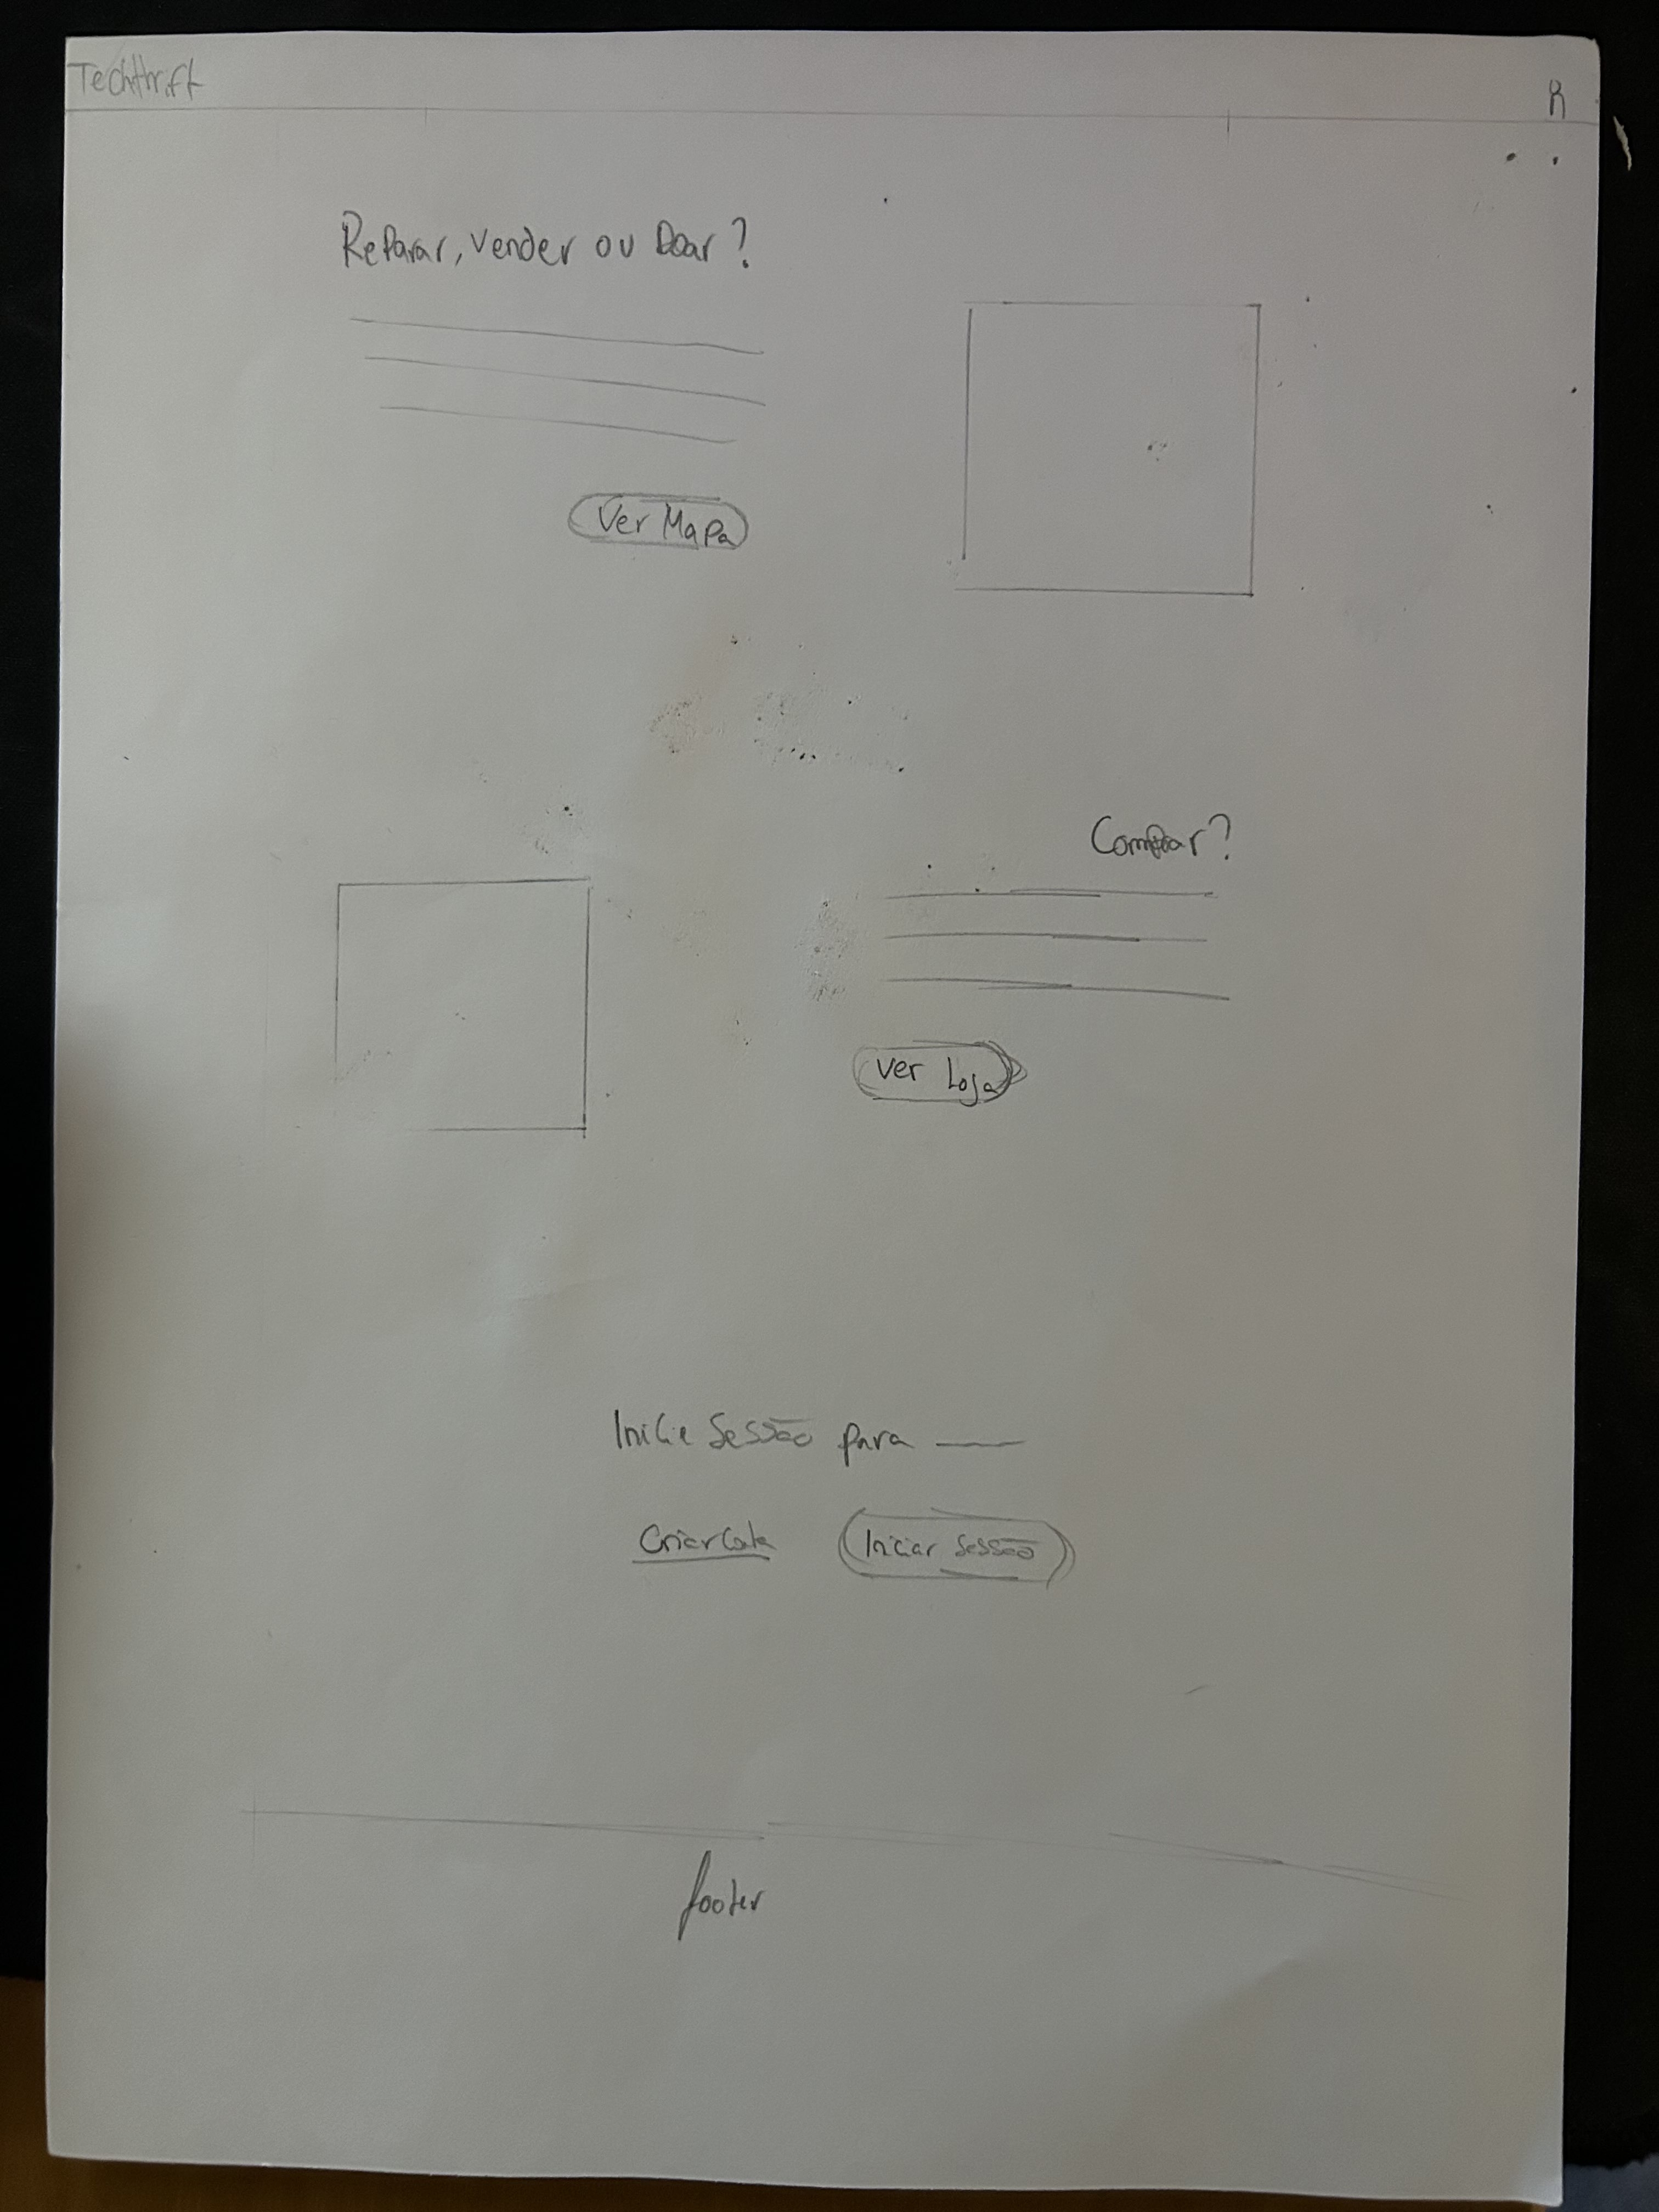 Techthrift
R
Reparar, Vender ou Doar?
Ver Mapa
Comprar?
Ver Loja
Inicie Sessão para
Criar Conta
Iniciar Sessão
footer